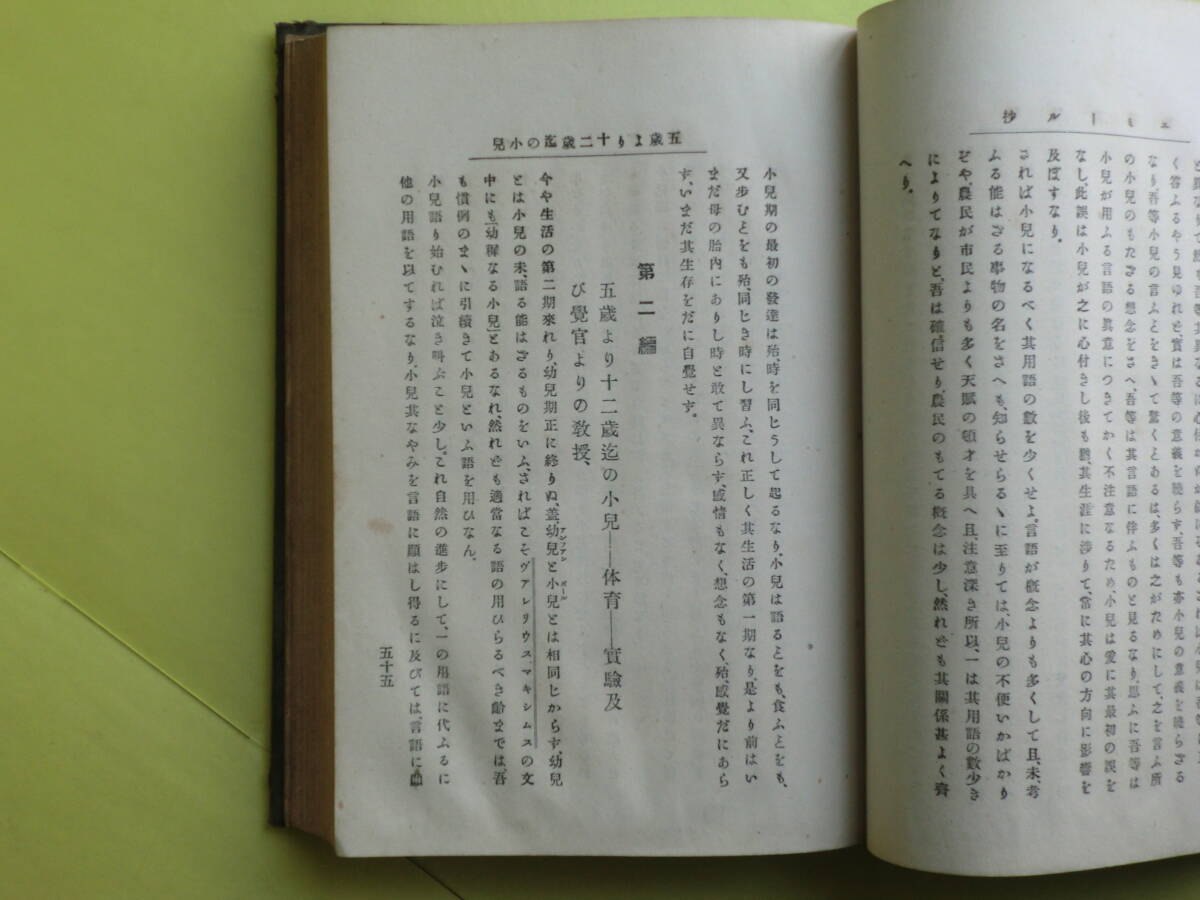 エミール抄
なり、吾等小兒の言ふとをきゝて驚くとあるは、多くは之がためにして、之を言ふ所
の小兒のもたざる想念をさへ、吾等は其言語に伴ふものと見るなり、思ふに吾等は
小兒が用ふる言語の眞意につきてかく不注意なるため、小兒は爰に其最初の誤を
なし、此誤は小兒が之に心付きし後も、其生涯に渉りて、常に其心の方向に影響を
及ぼすなり。
されば小兒になるべく其用語の數を少くせよ。言語が概念よりも多くして且、未、考
ふる能はざる事物の名をさへも、知らせらるゝに至りては、小兒の不便いかばかり
ぞや、農民が市民よりも多く天賦の頓才を具へ且、注意深き所以、一は其用語の數少き
によりてなりと、吾は確信せり、農民のもてる概念は少し、然れども其關係甚よく齊
へり。
五歳より十二歳迄の小兒
小兒期の最初の發達は殆、時を同じうして起るなり、小兒は語るとをも、食ふとをも、
又歩むとをも殆、同じき時にし習ふ、これ正しく其生活の第一期なり、是より前はい
まだ母の胎内にありし時と敢て異ならず、感情もなく、想念もなく、殆、感覺だにあら
ず、いまだ其生存をだに自覺せず。
第二編
五歳より十二歳迄の小兒——体育——實驗及
び覺官よりの教授、
今や生活の第二期來れり、幼兒期正に終りぬ、蓋、幼兒アンファンと小兒ボールとは相同じからず、幼兒
とは小兒の未、語る能はざるものをいふ、さればこそヴァレリウス、マキシムスの文
中にも「幼穉なる小兒」とあるなれ、然れども適當なる語の用ひらるべき齡までは、吾
も慣例のまゝに引續きて小兒といふ語を用ひなん、
小兒語り始むれば泣き叫ぶこと少し。これ自然の進步にして、一の用語に代ふるに
他の用語を以てするなり、小兒其なやみを言語に顯はし得るに及びては、言語に顯
五十五